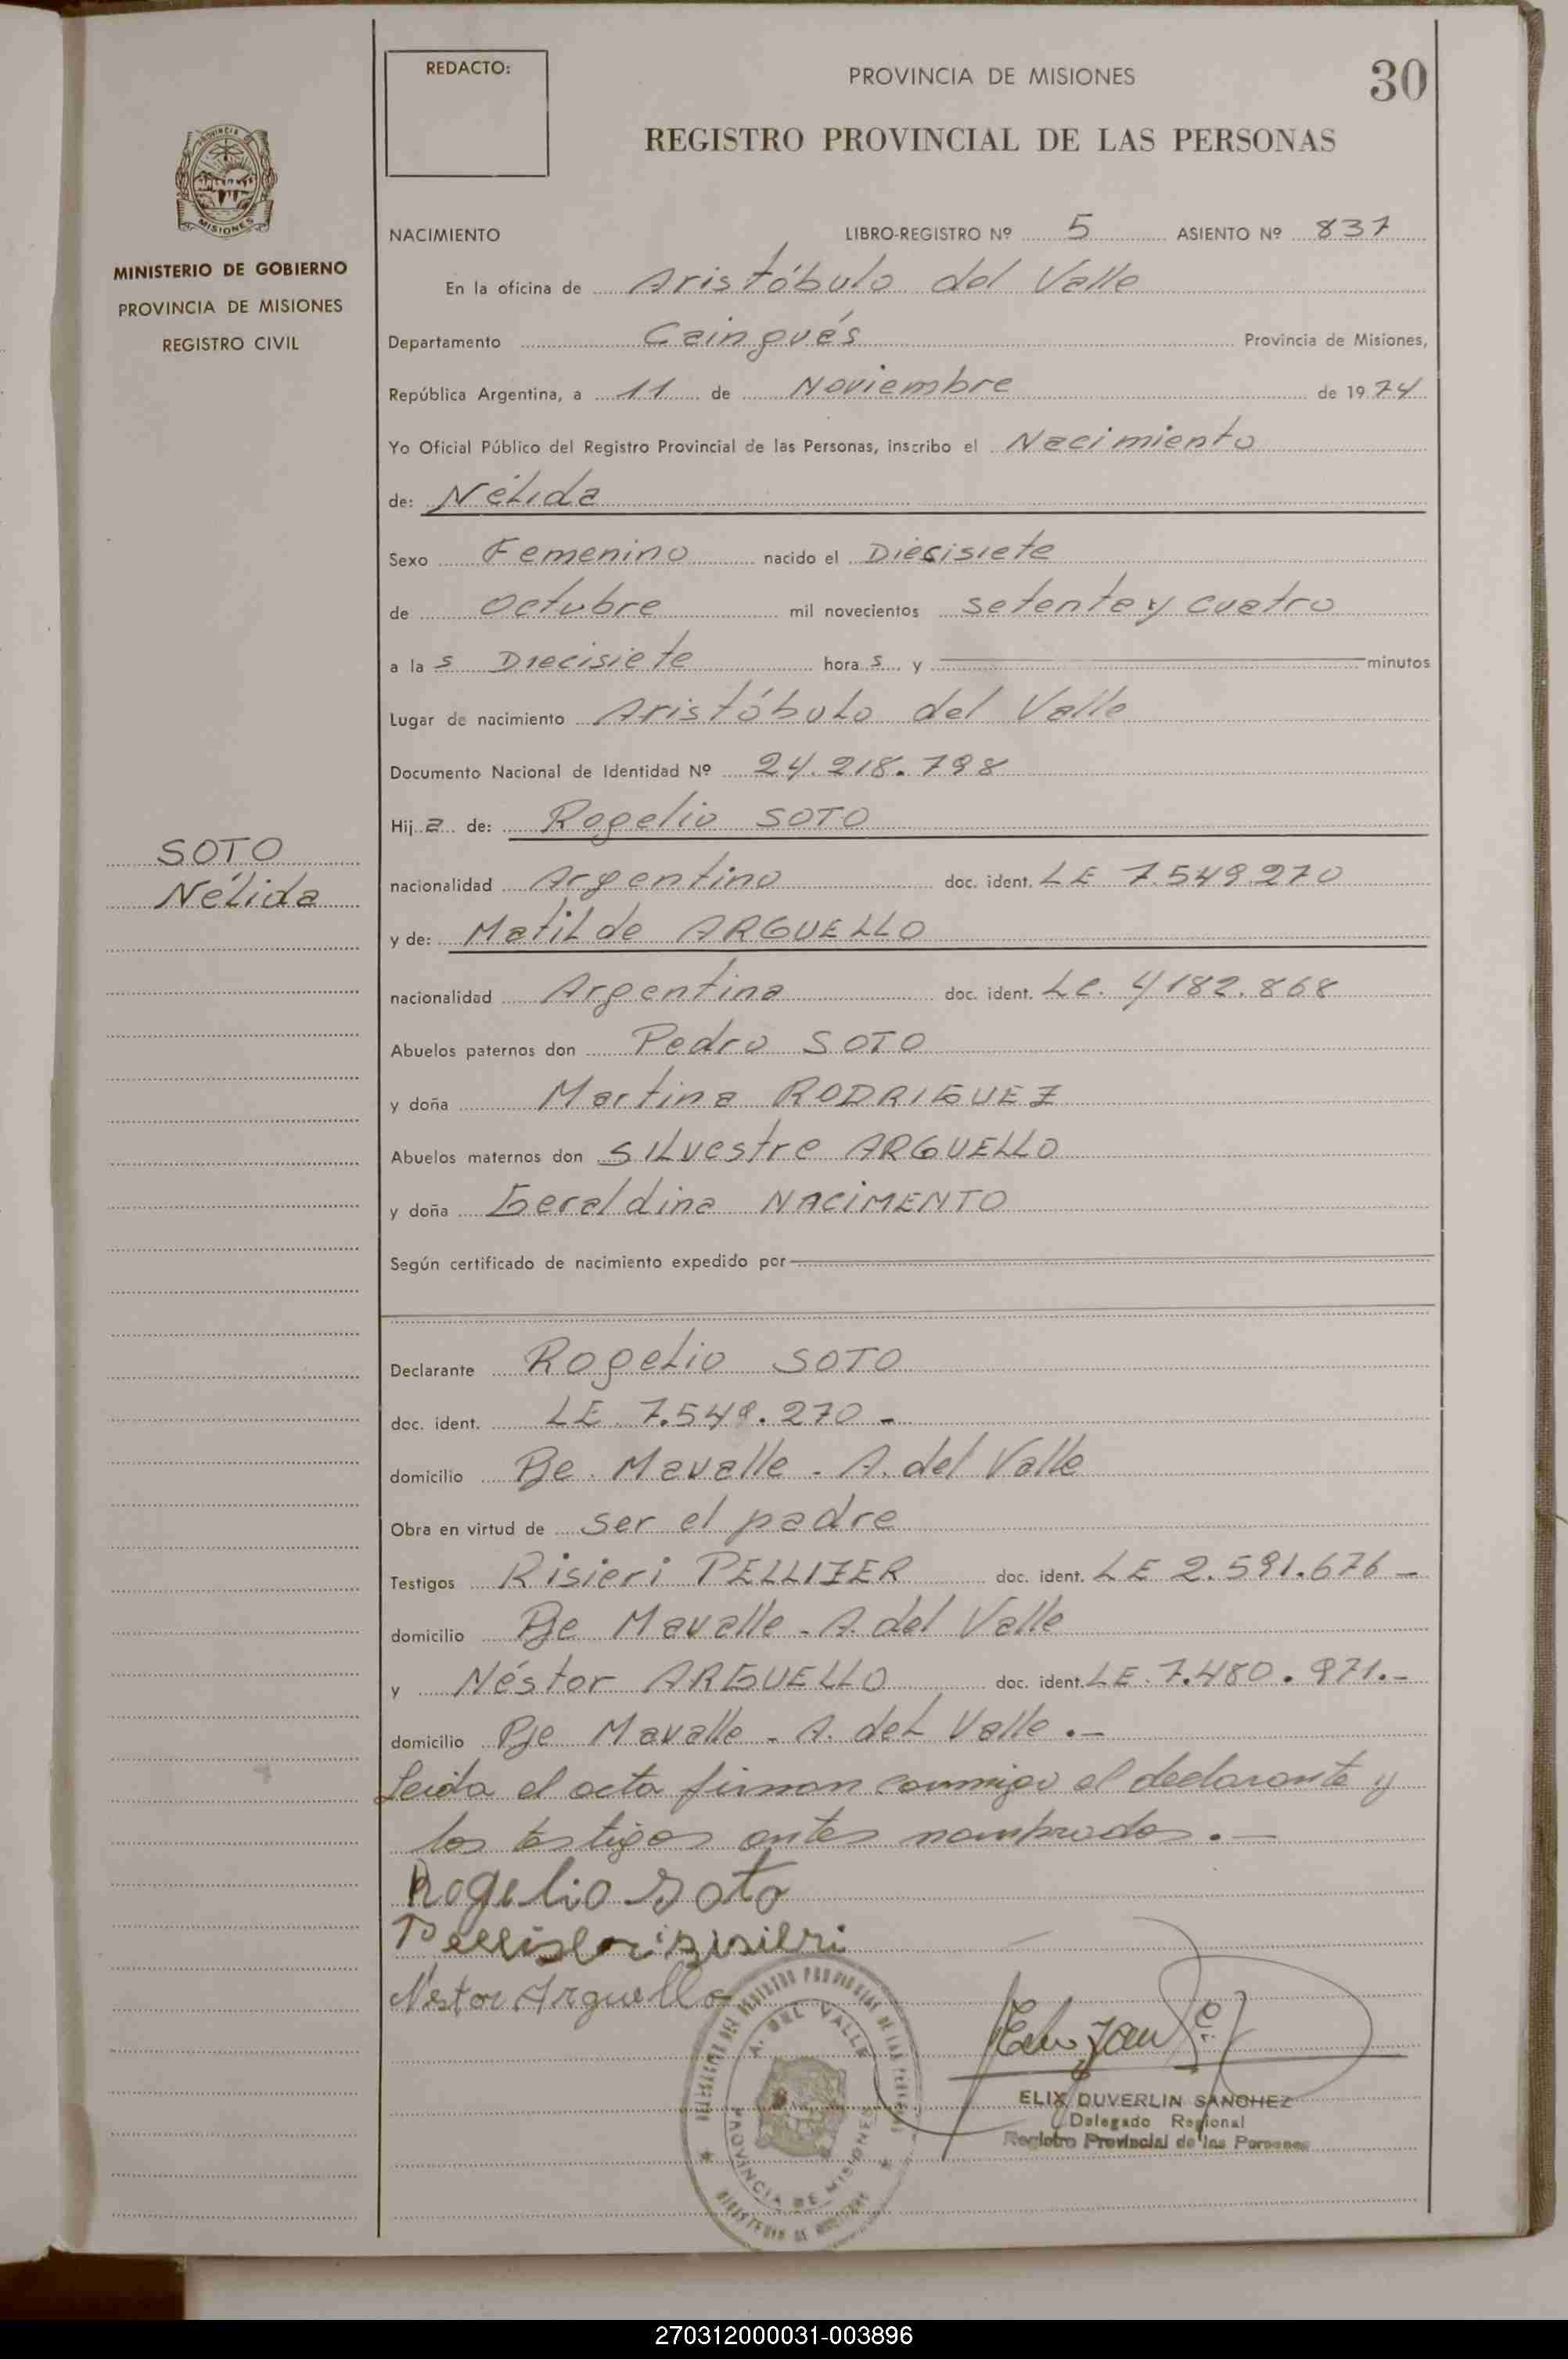 REDACTO:
PROVINCIA DE MISIONES
30
REGISTRO PROVINCIAL DE LAS PERSONAS
MISIONES
MINISTERIO DE GOBIERNO
PROVINCIA DE MISIONES
REGISTRO CIVIL
NACIMIENTO LIBRO-REGISTRO Nº 5 ASIENTO Nº 837
En la oficina de Aristóbulo del Valle
Departamento Caingués Provincia de Misiones,
República Argentina, a 11 de Noviembre de 1974
Yo Oficial Público del Registro Provincial de las Personas, inscribo el Nacimiento
de: Nélida
Sexo Femenino nacido el Diecisiete
de Octubre mil novecientos setenta y cuatro
a las Diecisiete horas y minutos
Lugar de nacimiento Aristóbulo del Valle
Documento Nacional de Identidad Nº 24.218.798
Hija de: Rogelio SOTO
SOTO
Nélida
nacionalidad Argentino doc. ident. LE 7.549.270
y de: Matilde ARGUELLO
nacionalidad Argentina doc. ident. LC. 4182.868
Abuelos paternos don Pedro SOTO
y doña Martina RODRIGUEZ
Abuelos maternos don Silvestre ARGUELLO
y doña Geraldina NACIMENTO
Según certificado de nacimiento expedido por
Declarante Rogelio SOTO
doc. ident. LE 7.549.270-
domicilio Pje. Mavalle - A. del Valle
Obra en virtud de ser el padre
Testigos Risieri PELLIZER doc. ident. LE 2.591.676-
domicilio Pje Mavalle - A. del Valle
y Néstor ARGUELLO doc. ident. LE. 7.480.971.-
domicilio Pje Mavalle - A. del Valle.-
Leida el acta firman conmigo el declarante y
los testigos antes nombrados.-
Rogelio Soto
Nestor Arguello
A. DEL VALLE
PROVINCIA DE MISIONES
ELIX DUVERLIN SANCHEZ
Delegado Regional
Registro Provincial de las Personas
270312000031-003896